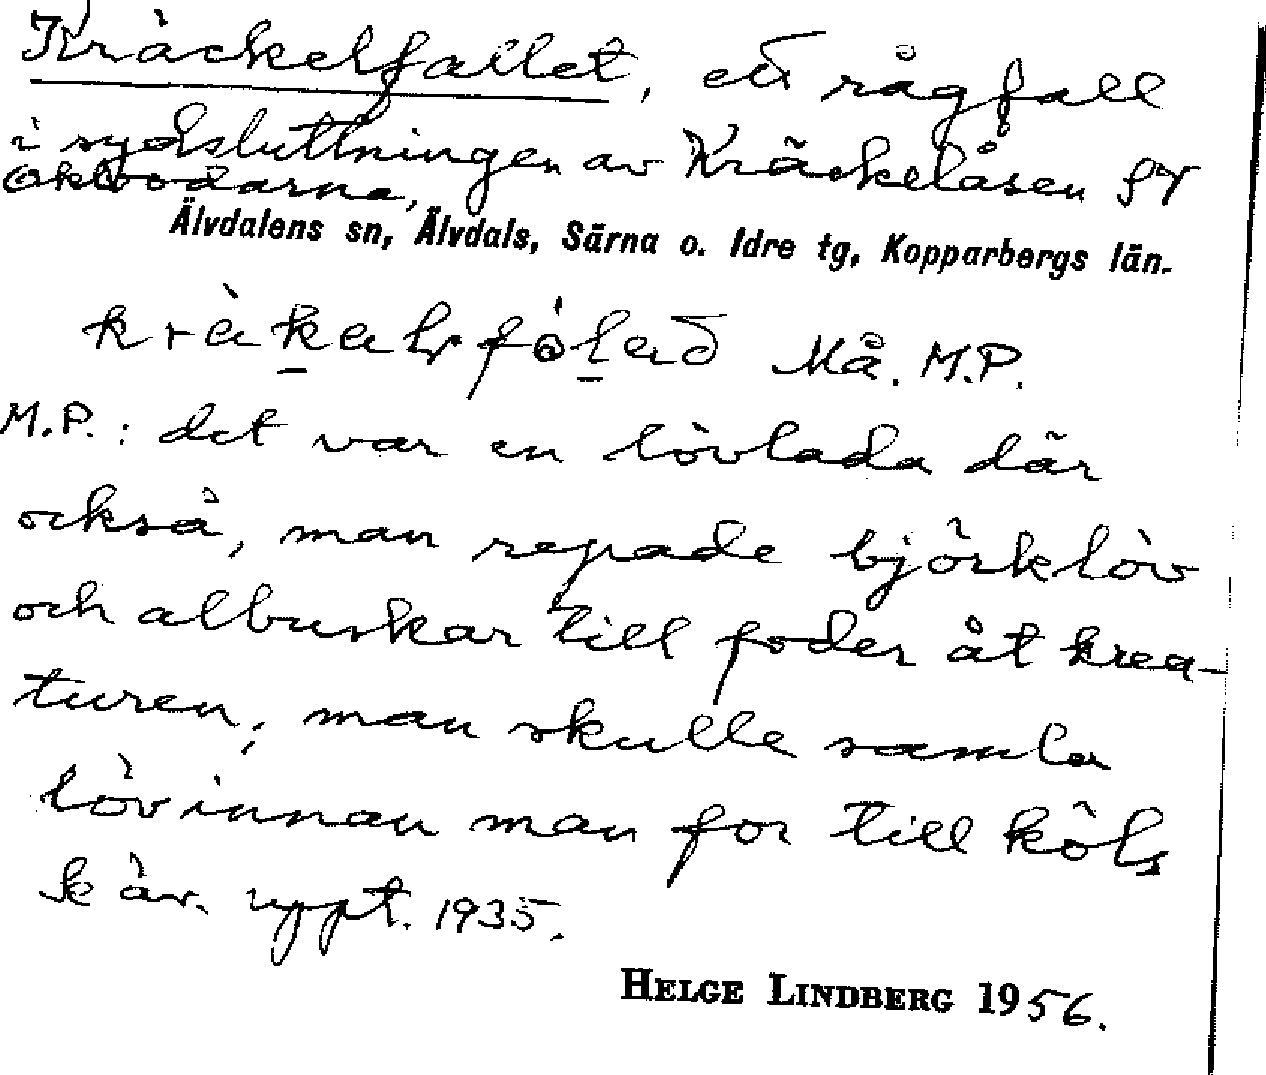 Kräckelfallet, ett rågfall
i sydsluttningen av Kräckelåsen SV
Oklbodarna,
Älvdalens sn, Älvdals, Särna o. Idre tg, Kopparbergs län.
Må. M.P.
M.P.: det var en lövlada där
också, man repade björklöv
och albuskar till foder åt krea-
turen; man skulle samla
löv innan man for till köls
k äv. uppt. 1935.
HELGE LINDBERG 1956.